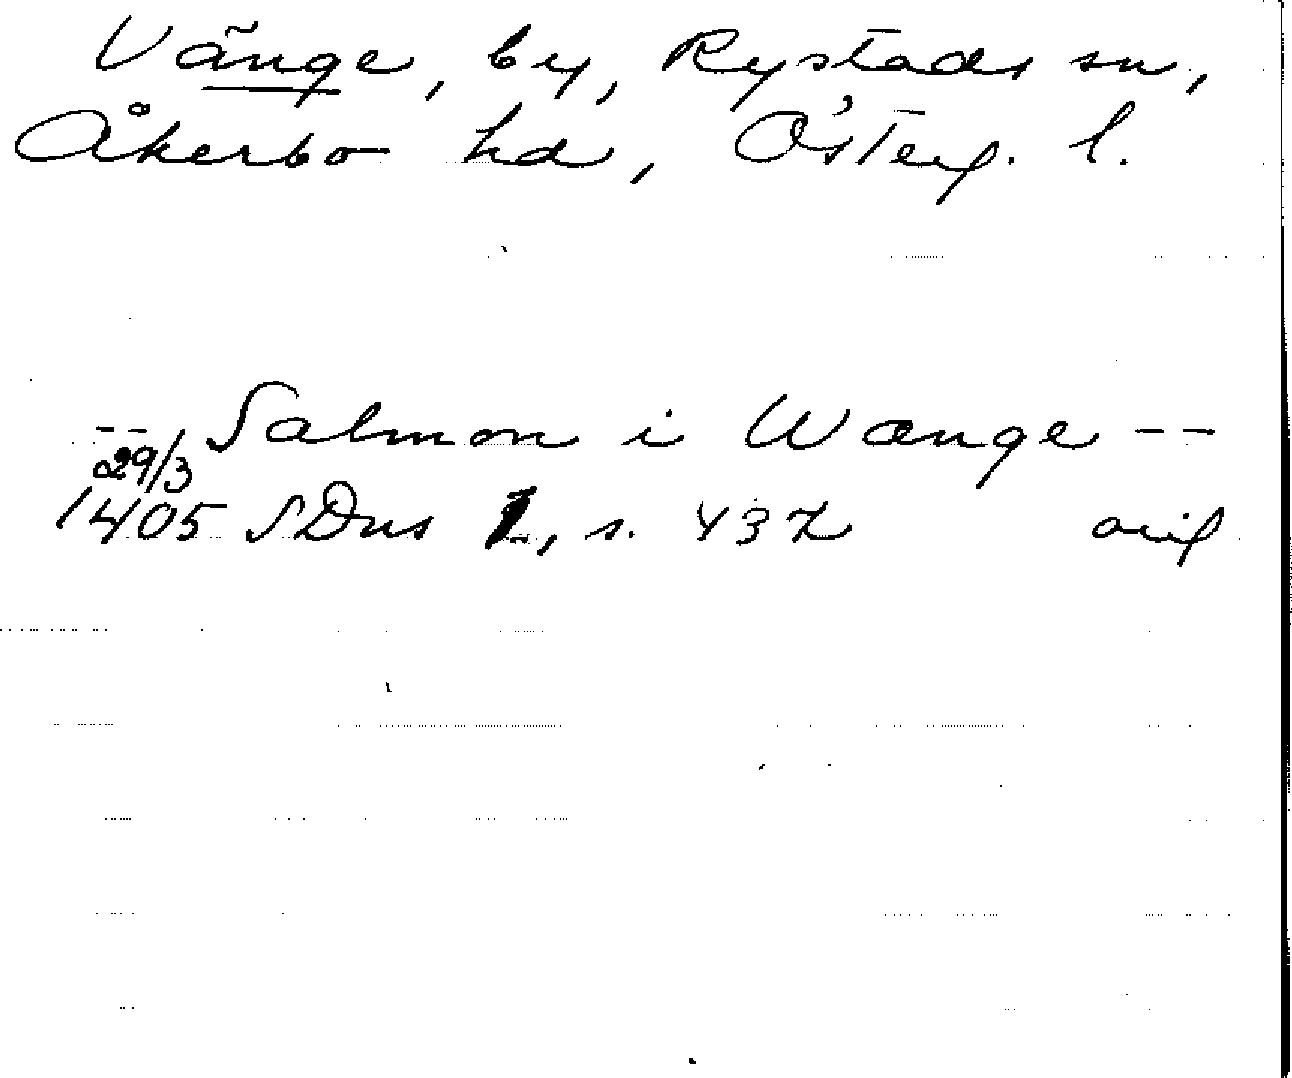 Vänge, by, Rystads sn,
Åkerbo hd, Österg. l.
-- Salmon i Wænge --
29/3
1405 SDns 1, s. 432 orig